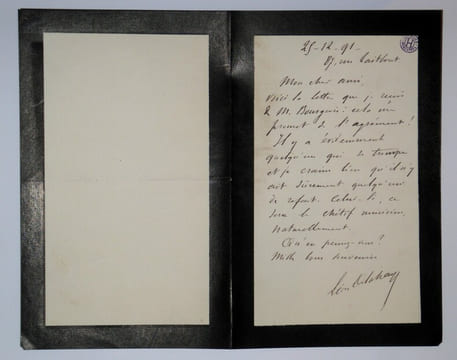 25-12-91-
rue Taitbout
Mon cher ami,
Voici la lettre que je reçois
de M. Bourgeois: cela m'en
promet de l'agrément!
Il y a évidemment
quelqu'un qui se trompe
et je crains bien qu'il n'y
ait sûrement quelqu'un
de refait. Celui-là, ce
sera le chétif musicien,
naturellement.
Qu'en pensez-vous?
Mille bons souvenirs
Léo Delibes